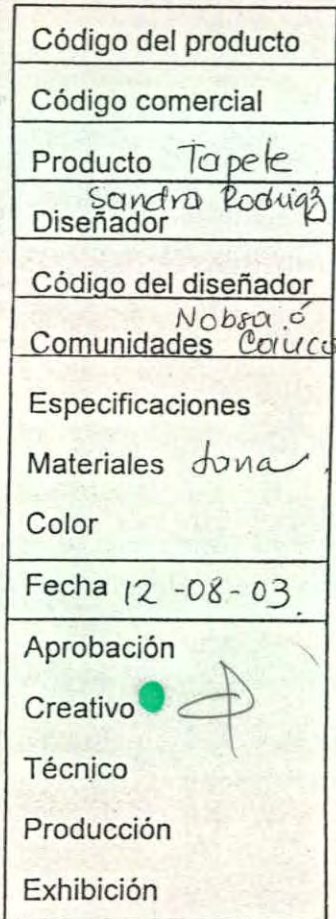 Código del producto
Código comercial
Producto Tapete
Sandra Rodrig
Diseñador
Código del diseñador
Nobsa ó
Comunidades Cauca
Especificaciones
Materiales
Color
Fecha 12-08-03.
Aprobación
Creativo
Técnico
Producción
Exhibición